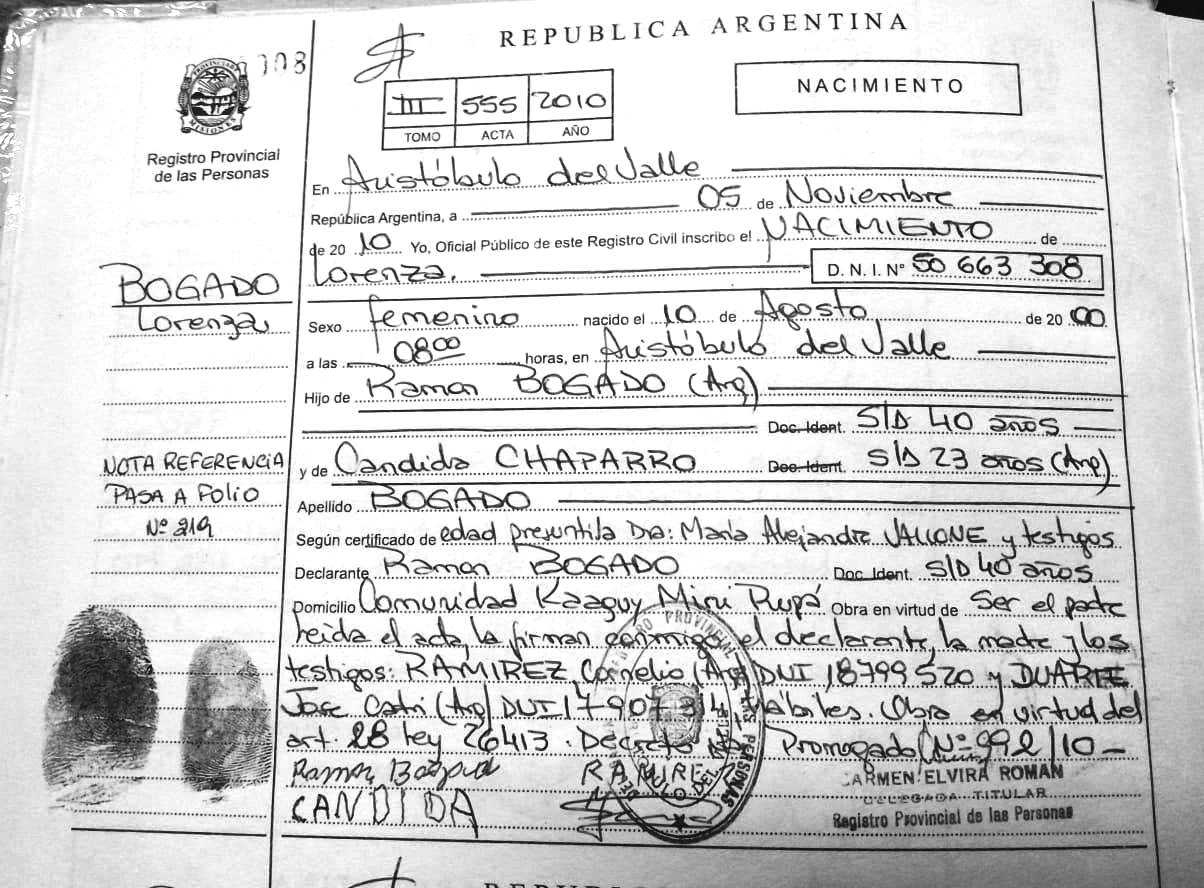 REPUBLICA ARGENTINA
308
PROVINCIA
MISIONES
Registro Provincial
de las Personas
III 555 2010
TOMO ACTA AÑO
NACIMIENTO
En Aristóbulo del Valle
República Argentina, a 05 de Noviembre
de 2010 Yo, Oficial Público de este Registro Civil inscribo el NACIMIENTO de
Lorenza. D. N. I. Nº 50 663 308
BOGADO
Lorenza
Sexo femenino nacido el 10 de Agosto de 20 00
a las 08 00 horas, en Aristóbulo del Valle
Hijo de Ramon BOGADO (Arg)
Doc. Ident. S/D 40 años
y de Candida CHAPARRO Doc. Ident. S/D 23 años (Arg)
NOTA REFERENCIA
PASA A FOLIO
Nº 219
Apellido BOGADO
Según certificado de edad Dra: María Alejandra y testigos
Declarante Ramon BOGADO Doc. Ident. S/D 40 años
Domicilio Comunidad Kaaguy Miri Rupá Obra en virtud de ser el padre
leida el acta, la firman conmigo el declarante, la madre y los
testigos: RAMIREZ, Cornelio (Arg) DUI 18799520 y DUARTE
Jose (Arg) DUI 17907314, hábiles. Obra en virtud del
art: 28 ley 26413. Decreto Promogado Nº 992/10
Ramon Bogado RAMIRE
CANDIDA
CARMEN ELVIRA ROMAN
DELEGADA TITULAR
Registro Provincial de las Personas